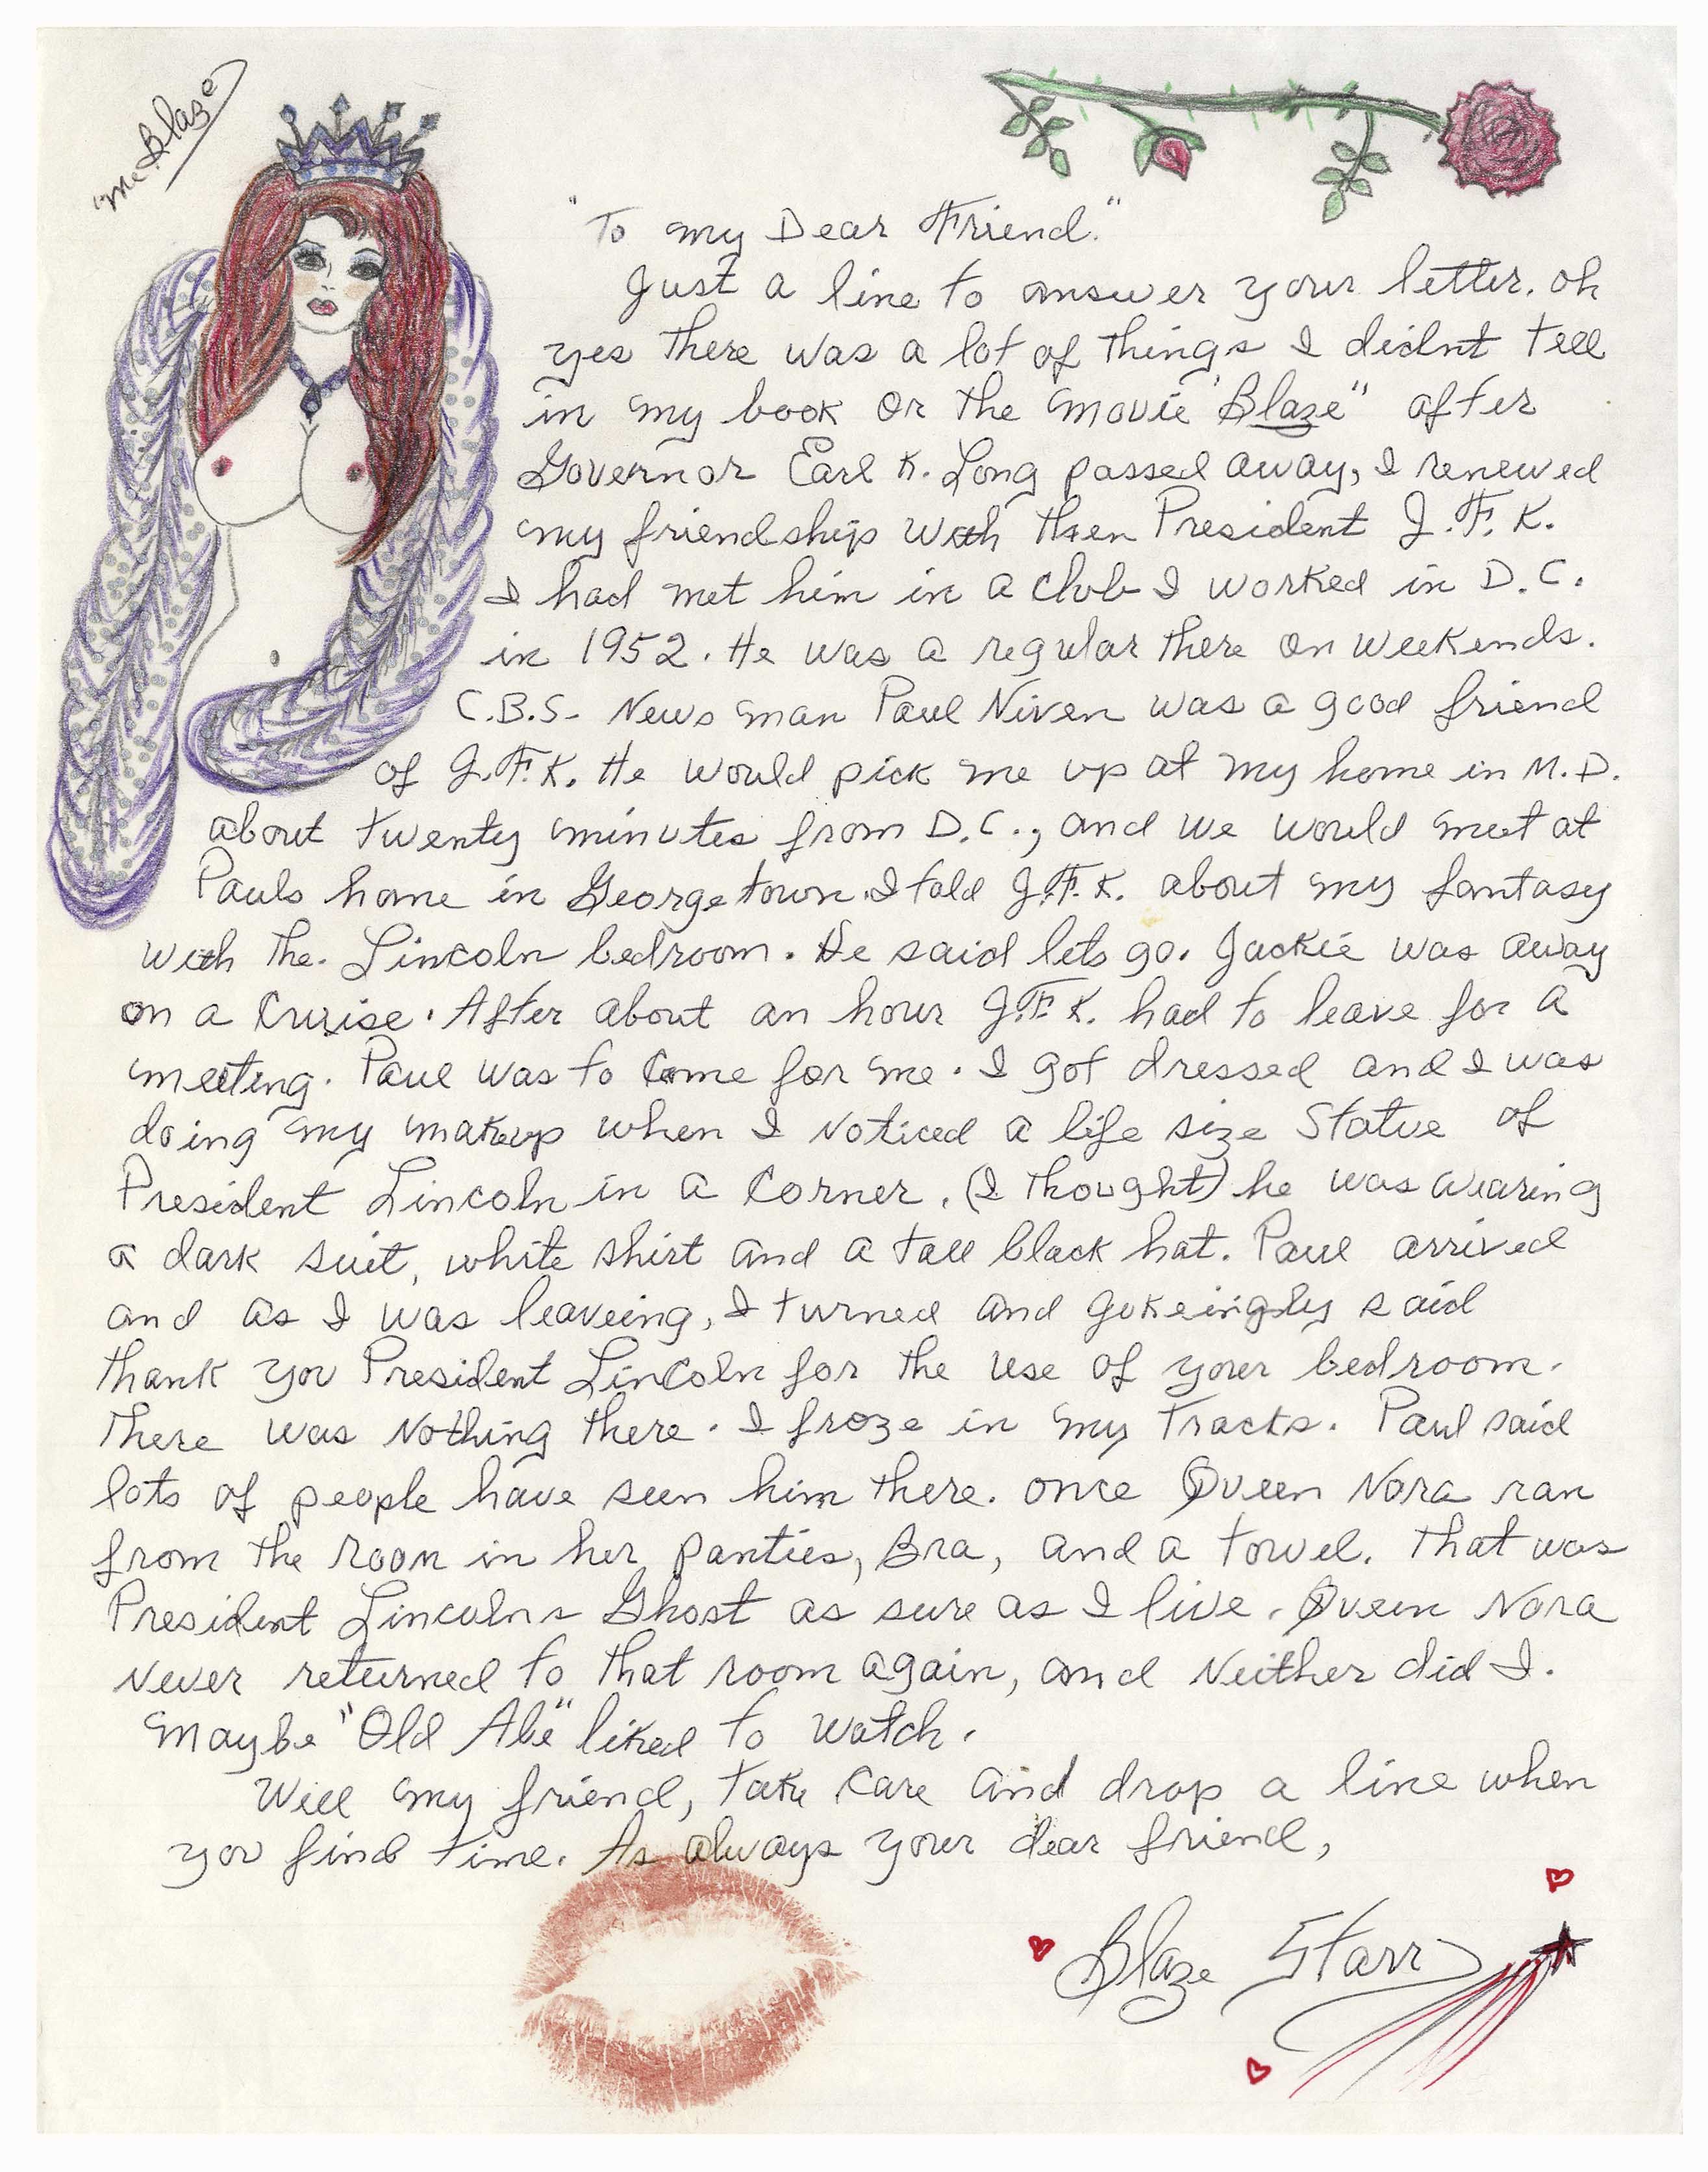 "Me Blaze"
"To my Dear Friend."
Just a line to answer your letter. oh
yes there was a lot of things I didnt tell
in my book or the movie "Blaze" after
Governor Earl K. Long passed away, I renewed
my friendship with then President J.F.K.
I had met him in a club I worked in D.C.
in 1952. He was a regular there on weekends.
C.B.S. News man Paul Niven was a good friend
of J.F.K. He would pick me up at my home in M.D.
about twenty minutes from D.C., and we would meet at
Pauls home in Georgetown. I told J.F.K. about my fantasy
with the. Lincoln bedroom. He said lets go. Jackie was away
on a Cruise. After about an hour J.F.K. had to leave for a
meeting. Paul was to come for me. I got dressed and I was
doing my makeup when I noticed a life size Statue of
President Lincoln in a Corner. (I thought) he was wearing
a dark suit, white shirt and a tall black hat. Paul arrived
and as I was leaveing, I turned and jokeingly said
thank you President Lincoln for the use of your bedroom.
There was Nothing there. I froze in my Tracts. Paul said
lots of people have seen him there. once Queen Nora ran
from the room in her panties, Bra, and a towel. That was
President Lincolns Ghost as sure as I live. Queen Nora
Never returned to that room again, and Neither did I.
Maybe "Old Abe" liked to watch.
Well my friend, take care and drop a line when
you find time. As always your dear friend,
Blaze Starr